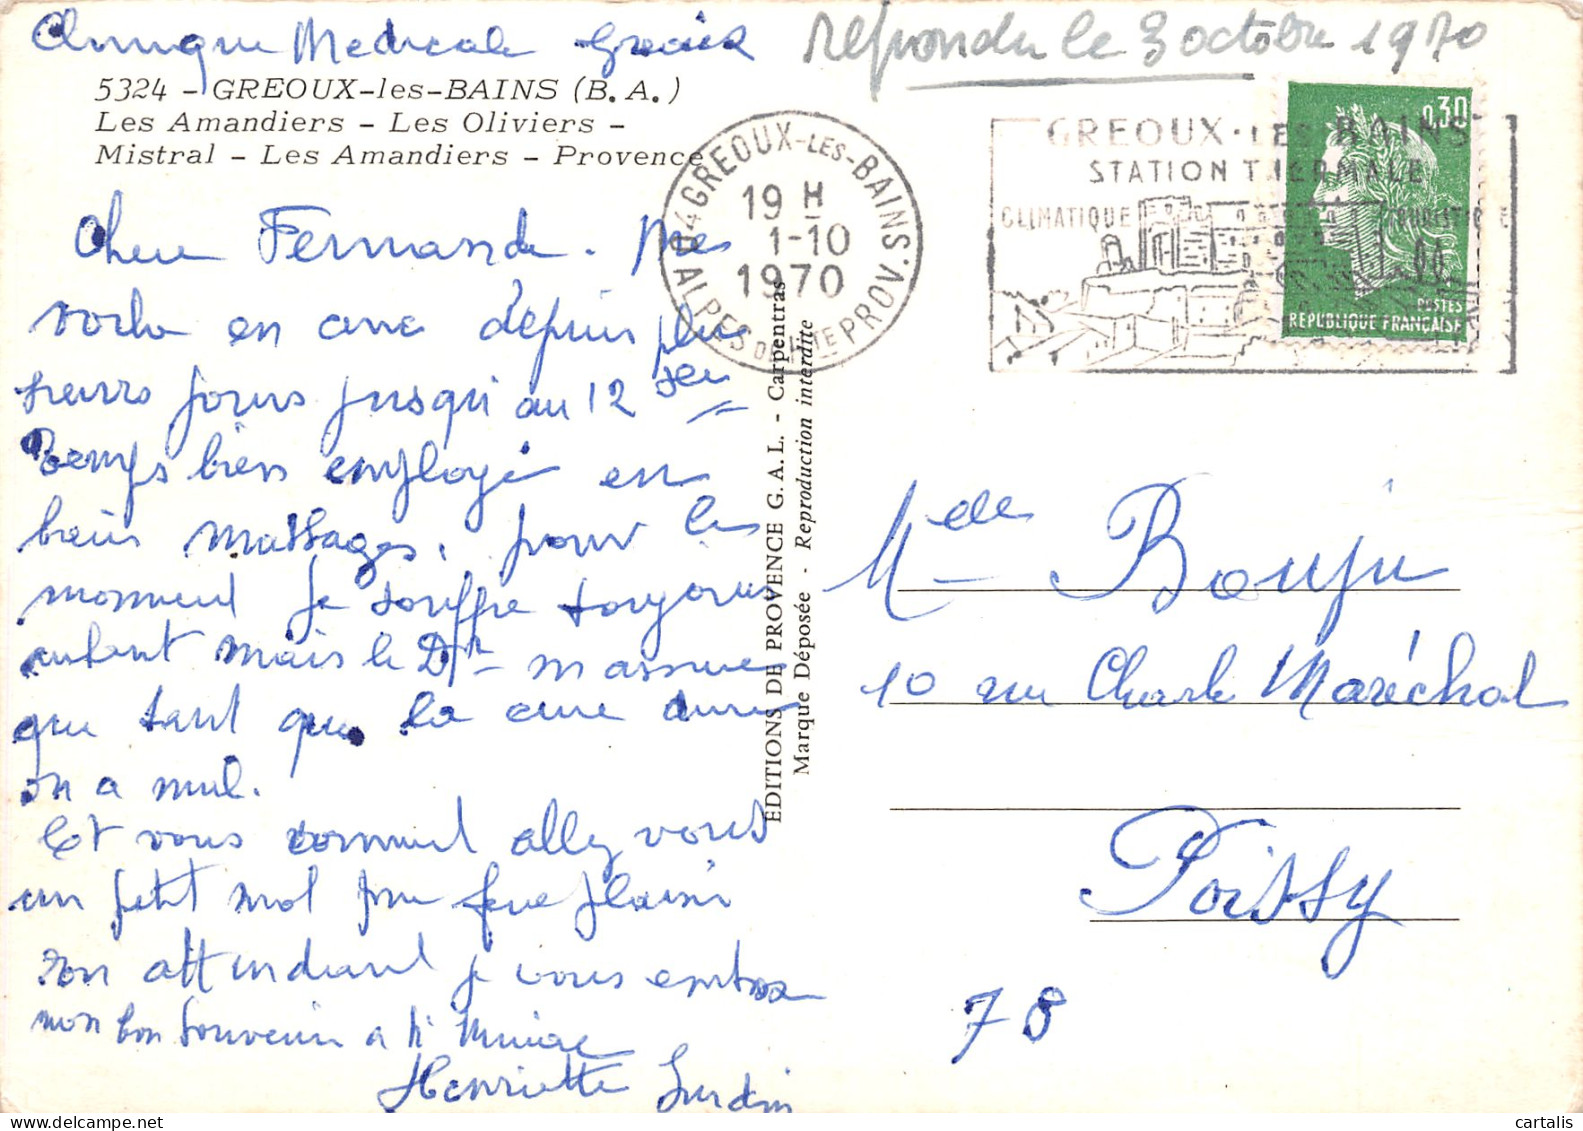 Clinique Medicale Greoux
repondu le 3 octobre 1970
5324 - GREOUX-les-BAINS (B. A.)
Les Amandiers - Les Oliviers -
Mistral - Les Amandiers - Provence
04 GREOUX-LES-BAINS
19 H
1-10
1970
ALPES DE HTE PROV.
GREOUX-LES-BAINS
STATION THERMALE
CLIMATIQUE TOURISTIQUE
0,30
POSTES
REPUBLIQUE FRANÇAISE
Chere Fernande. Me
voila en cure depuis plu
sieurs jours jusqu'au 12
Temps bien employé en
bain massages, pour le
moment je souffre toujours
autant mais le Dr m assure
que tant que la cure dure
on a mal.
Et vous comment allez vous
un petit mot me fera plaisir
en attendant je vous embrasse
mon bon souvenir a
Henriette
EDITIONS DE PROVENCE G.A.L. - Carpentras
Marque Déposée - Reproduction interdite
Melle Bouju
10 rue Charle Maréchal
Poissy
78
cartalis